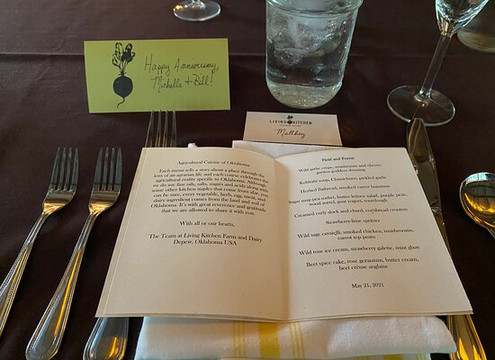 Happy Anniversary,
Michelle + Bill!
LIVING KITCHEN
Agricultural Cuisine of Oklahoma
Each menu tells a story about a place through the
lens of an agrarian life and each course celebrates the
agricultural reality specific to Oklahoma. Although
we do use fine oils, salts, sugars and acids along with
some other kitchen staples that come from afar, you
can be sure, every vegetable, herb, egg, meat, and
dairy ingredient comes from the land and soil of
Oklahoma. It's with great reverence and gratitude,
that we are allowed to share it with you.
With all or our hearts,
The Team at Living Kitchen Farm and Dairy
Depew, Oklahoma USA
Field and Forest
Wild garlic crepe, mushrooms and cheese,
garden goddess dressing
Kohlrabi xuixo, Chantecaille, pickled garlic
Herbed flatbread, smoked carrot hummus
Sugar snap pea sorbet, butter lettuce salad, purple peas,
wood sorrel, goat yogurt, sourdough
Creamed curly dock and chard,
Strawberry-lime spritzer
Wild sage cannoli, smoked chicken, mushrooms,
carrot top pesto
Wild rose ice cream, strawberry galette, mint glass
Beet spice cake, rose geranium, butter cream,
beet crème anglaise
May 21, 2021